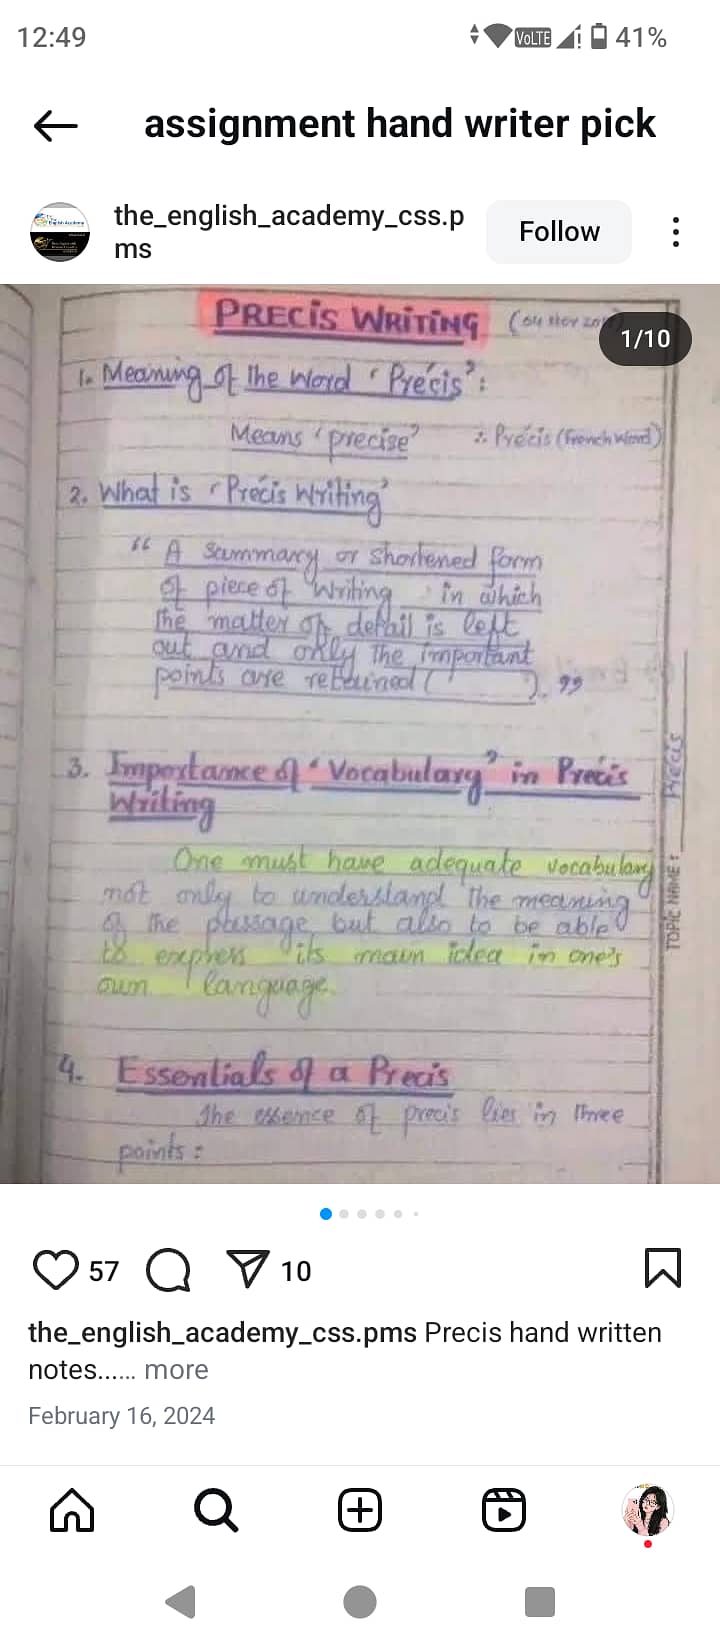 12:49
VoLTE
41%
assignment hand writer pick
the_english_academy_css.p
ms
Follow
PRECIS WRITING
1/10
1. Meaning of the Word ‘Précis’:
Means ‘precise’ ∴ Précis (French Word)
2. What is ‘Précis Writing’
“ A Summary or Shortened form
of piece of Writing in which
the matter of detail is left
out and only the important
points are retained ( ). ”
3. Importance of ‘Vocabulary’ in Precis
Writing
One must have adequate vocabulary
not only to understand the meaning
of the passage but also to be able
to express its main idea in one's
own language.
4. Essentials of a Precis
The essence of precis lies in three
points:
TOPIC NAME: Precis
57
10
the_english_academy_css.pms Precis hand written
notes...... more
February 16, 2024